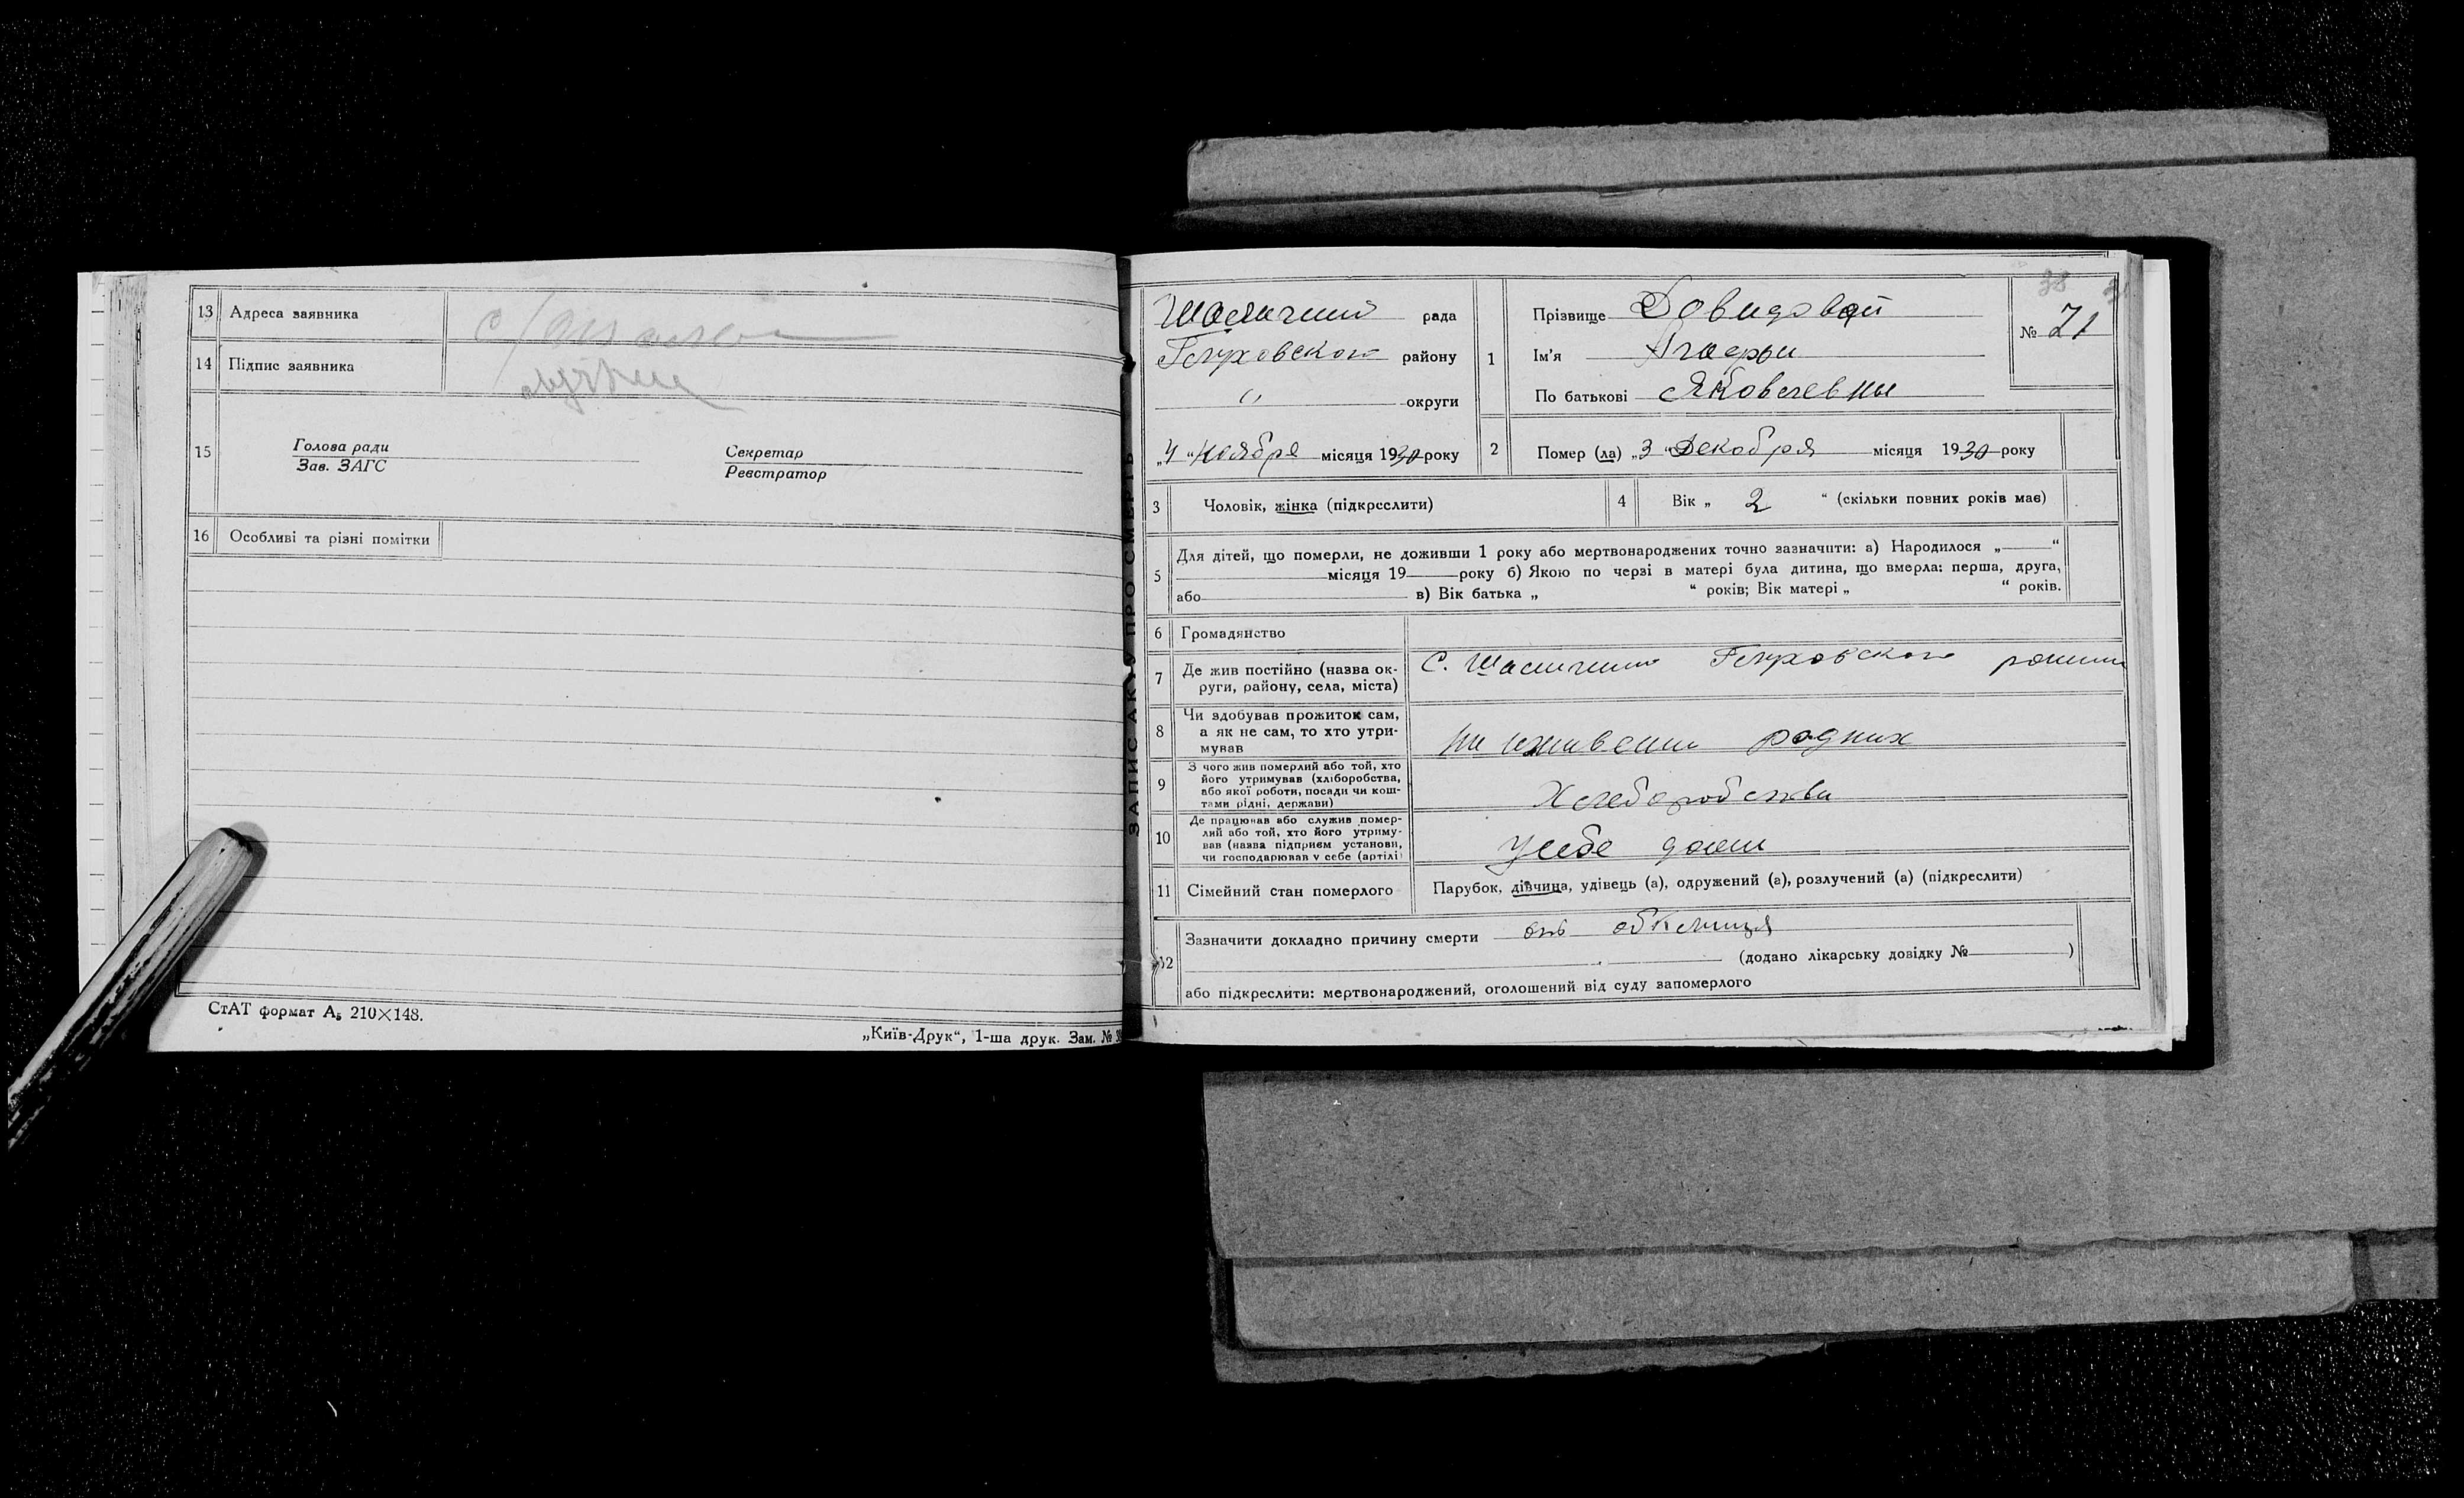 13 Адреса заявника
14 Підпис заявника
15
Голова ради
Зав. ЗАГС
Секретар
Реєстратор
16 Особливі та різні помітки
СтАТ формат А5 210×148.
„Київ-Друк“, 1-ша друк. Зам. №
ЗАПИС АКТУ ПРО СМЕРТЬ
38
рада
Глуховского району
" округи
„4“ Ноября місяця 1930 року
1
Прізвище Довидовой
Ім'я
По батькові Яковлевны
№ 21
2 Помер (ла) „3“ Декабря місяця 1930 року
3 Чоловік, жінка (підкреслити)
4 Вік „ 2 “ (скільки повних років має)
5
Для дітей, що померли, не доживши 1 року або мертвонароджених точно зазначити: а) Народилося „ “
місяця 19 року б) Якою по черзі в матері була дитина, що вмерла: перша, друга,
або в) Вік батька „ “ років; Вік матері „ “ років.
6 Громадянство
7 Де жив постійно (назва ок-
руги, району, села, міста)
С. Глуховского
8 Чи здобував прожиток сам,
а як не сам, то хто утри-
мував
родных
9 З чого жив померлий або той, хто
його утримував (хліборобства,
або якої роботи, посади чи кош-
тами рідні, держави)
10 Де працював або служив помер-
лий або той, хто його утриму-
вав (назва підприєм установи,
чи господарював у себе (артілі)
у себе дома
11 Сімейний стан померлого
Парубок, дівчина, удівець (а), одружений (а), розлучений (а) (підкреслити)
12 Зазначити докладно причину смерти
(додано лікарську довідку № )
або підкреслити: мертвонароджений, оголошений від суду запомерлого